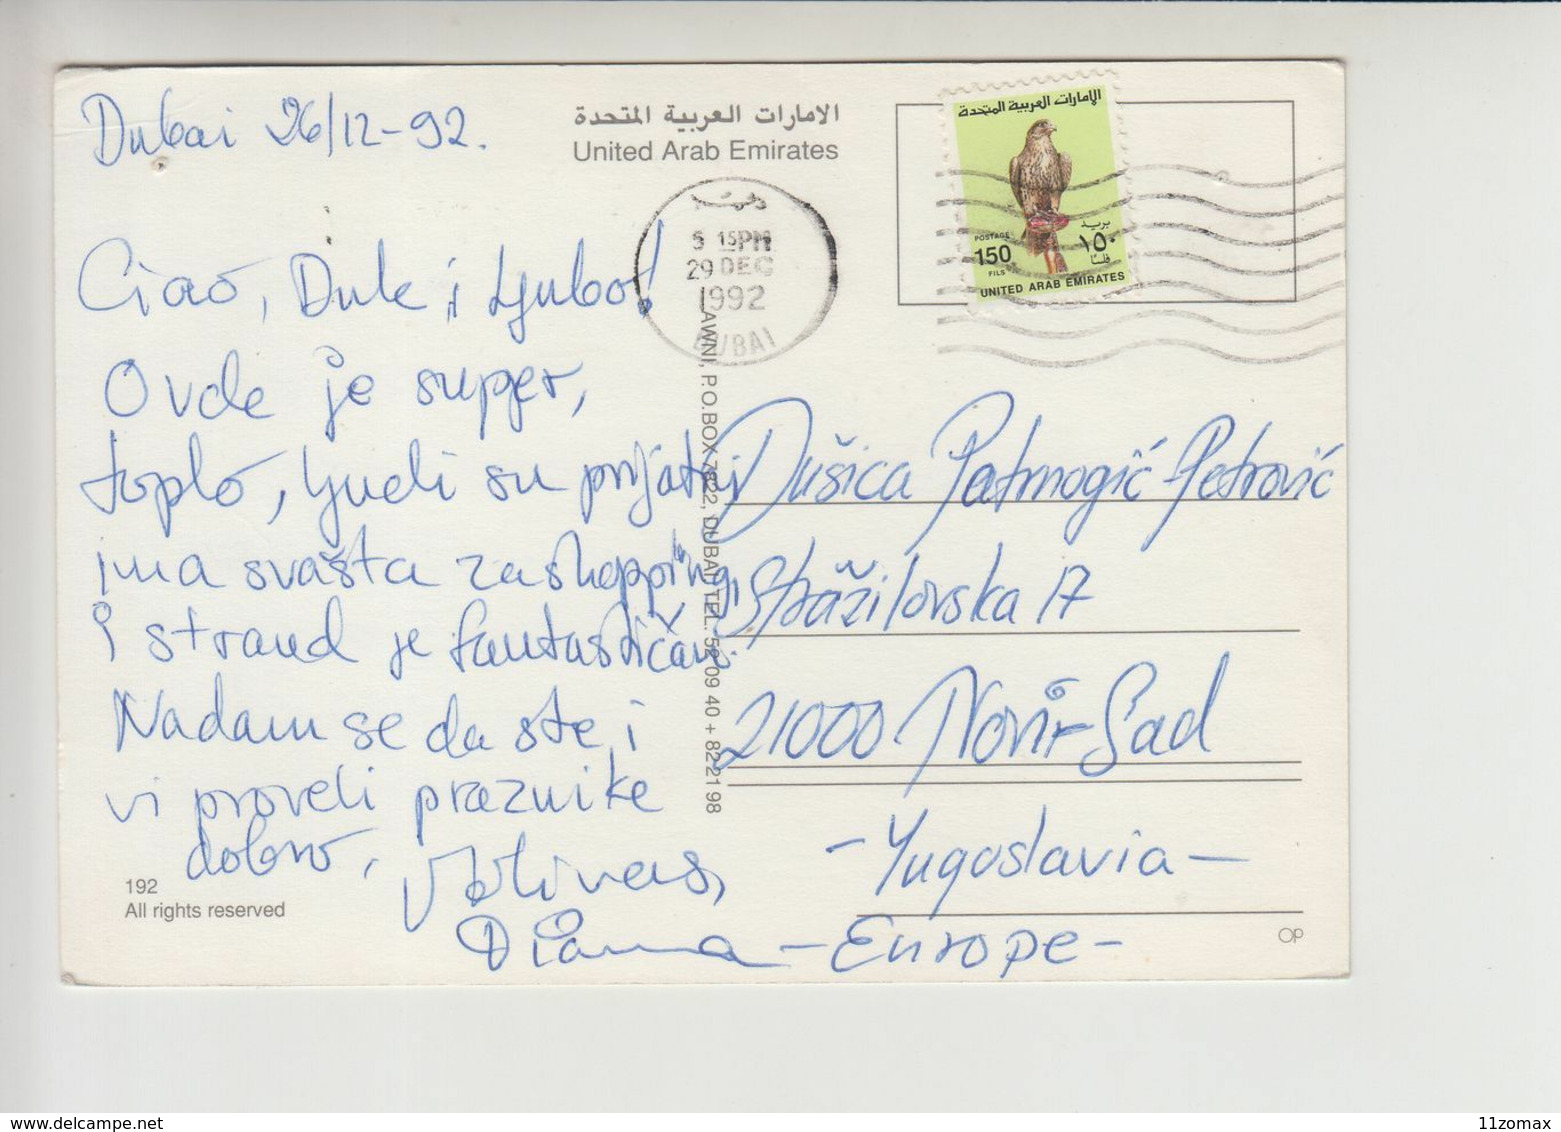 Dubai 26/12-92.
الامارات العربية المتحدة
United Arab Emirates
الإمارات العربية المتحدة
POSTAGE
بريد
150
١٥٠
FILS
فلسًا
UNITED ARAB EMIRATES
5 15PM
29 DEC
1992
DUBAI
Ciao, Dule i Ljubo!
Ovde je super,
toplo, ljudi su prijatni
ima svašta za shopping,
i strand je fantastičan.
Nadam se da ste i
vi proveli praznike
dobro,
Diana
AWNI, P.O.BOX 7822, DUBAI TEL. 52 09 40 + 82 21 98
Dušica Patrnogić-Petrović
Stražilovska 17
21000 Novi-Sad
- Yugoslavia -
- Europe -
192
All rights reserved
OP
11zomax